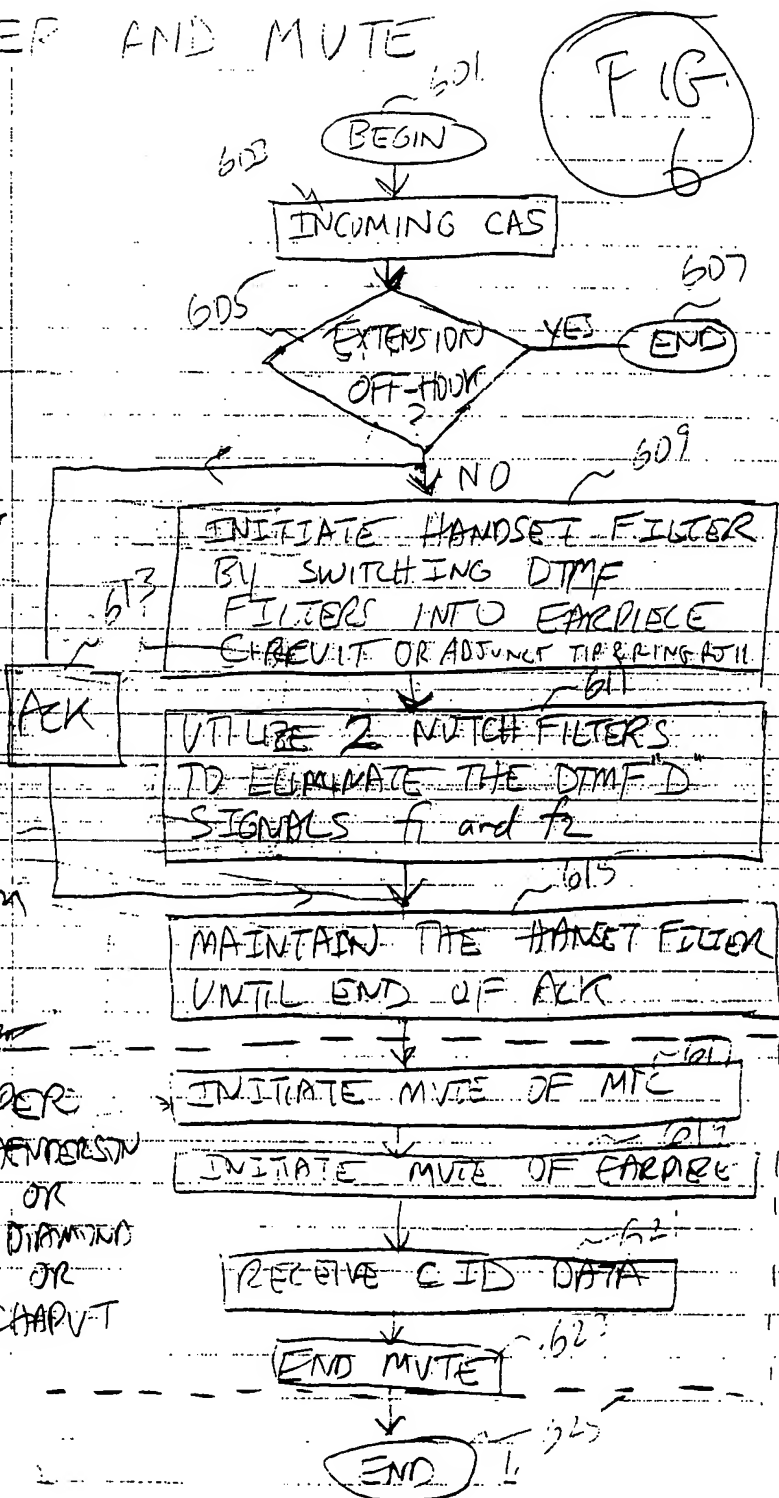 AND MUTE
FIG.
6
601
BEGIN
603
INCOMING CAS
605
EXTENSION
OFF-HOOK
?
YES
607
END
NO
609
INITIATE HANDSET FILTER
BY SWITCHING DTMF
FILTERS INTO EARPIECE
CIRCUIT OR ADJUNCT TIP & RING RJ11
613
ACK
611
UTILIZE 2 NOTCH FILTERS
TO ELIMINATE THE DTMF "D"
SIGNALS f1 and f2
615
MAINTAIN THE HANSET FILTER
UNTIL END OF ACK
617
INITIATE MUTE OF MIC
619
INITIATE MUTE OF EARPIECE
PER
HENDERSON
OR
DIAMOND
OR
CHAPUT
621
RECEIVE CID DATA
623
END MUTE
625
END